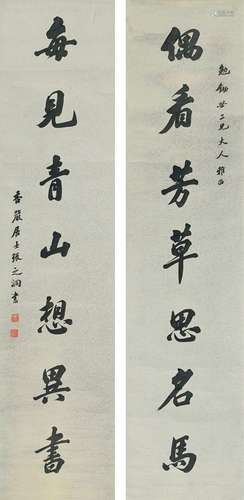 偶看芳草思名馬
二兄大人雅正
每見青山想異書
香嚴居士張之洞書